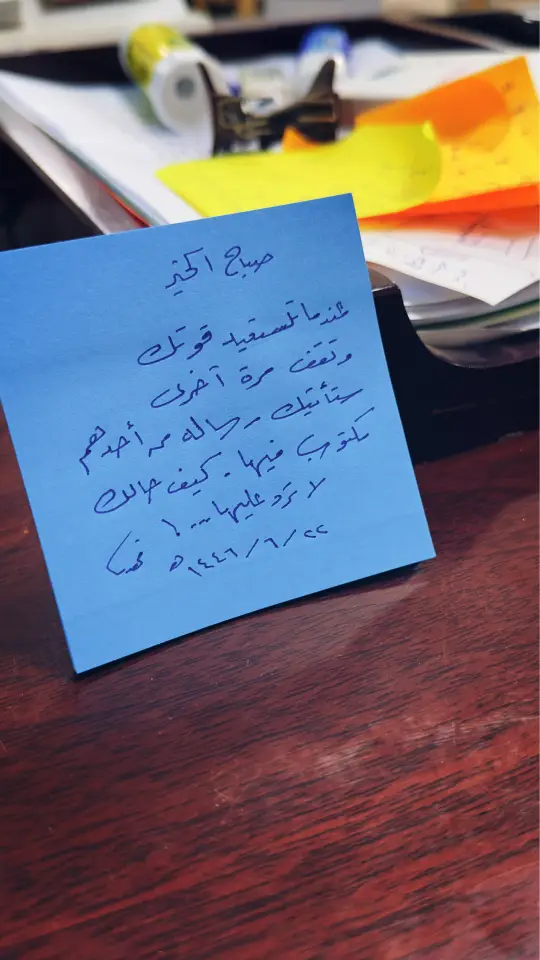 صباح الخير
عندما تستعيد قوتك
وتقف مرة آخرى
ستأتيك رساله من أحدهم
مكتوب فيها. كيف حالك
لا ترد عليها...!
١٤٤٦/٦/٢٢ هـ